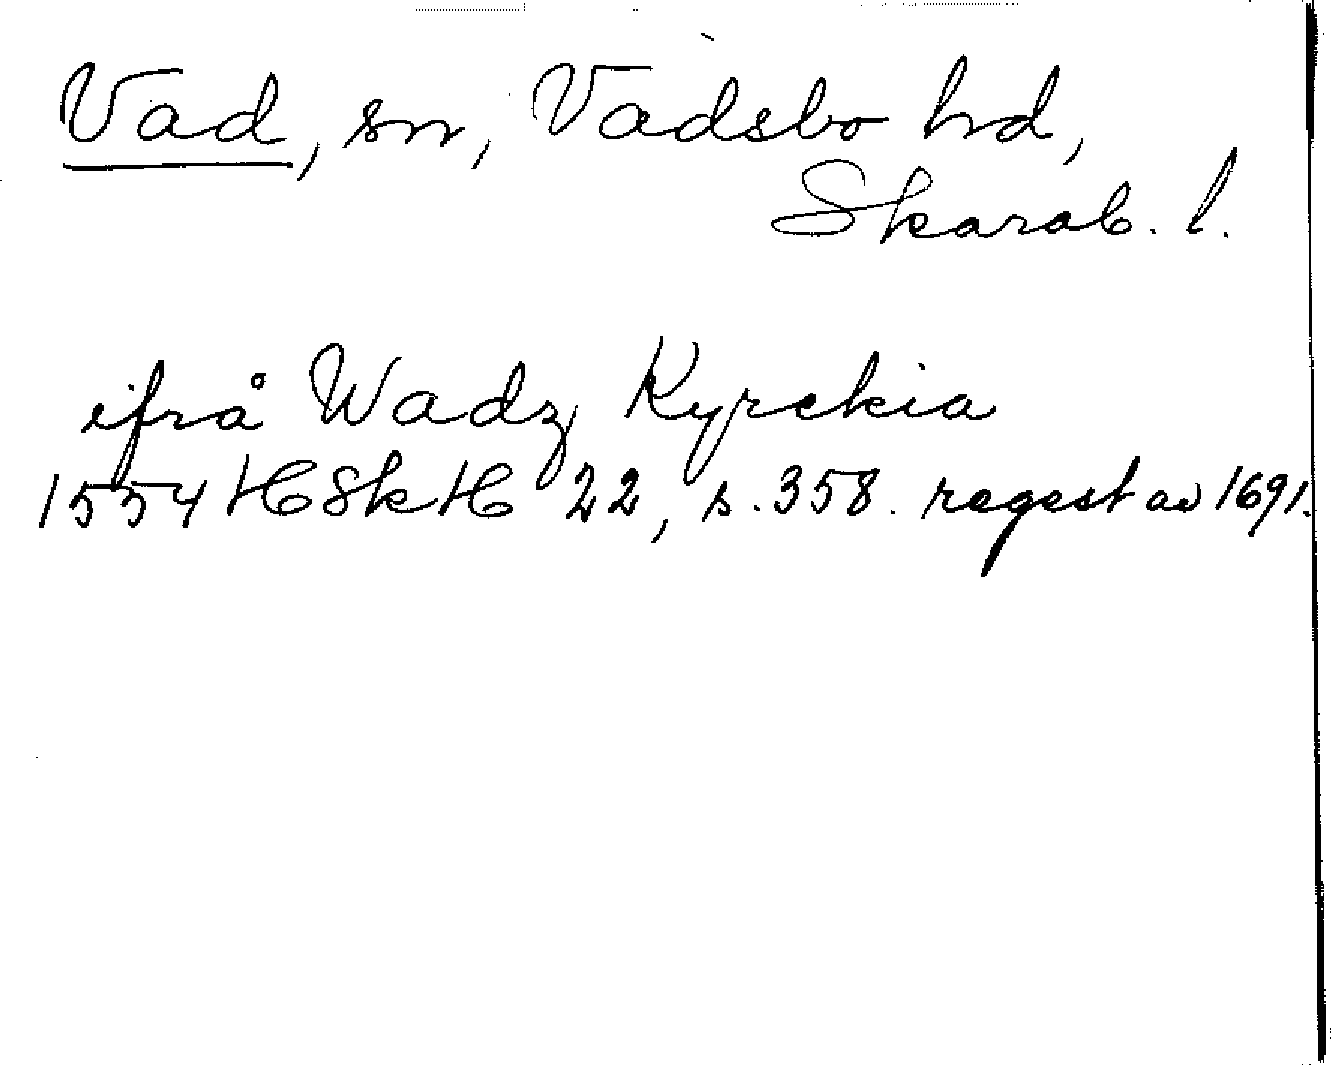 Vad, sn, Vadsbo hd,
Skarab. l.
ifrå Wadz Kyrckia
1554 HSkH 22, s. 358. regest av 1691.